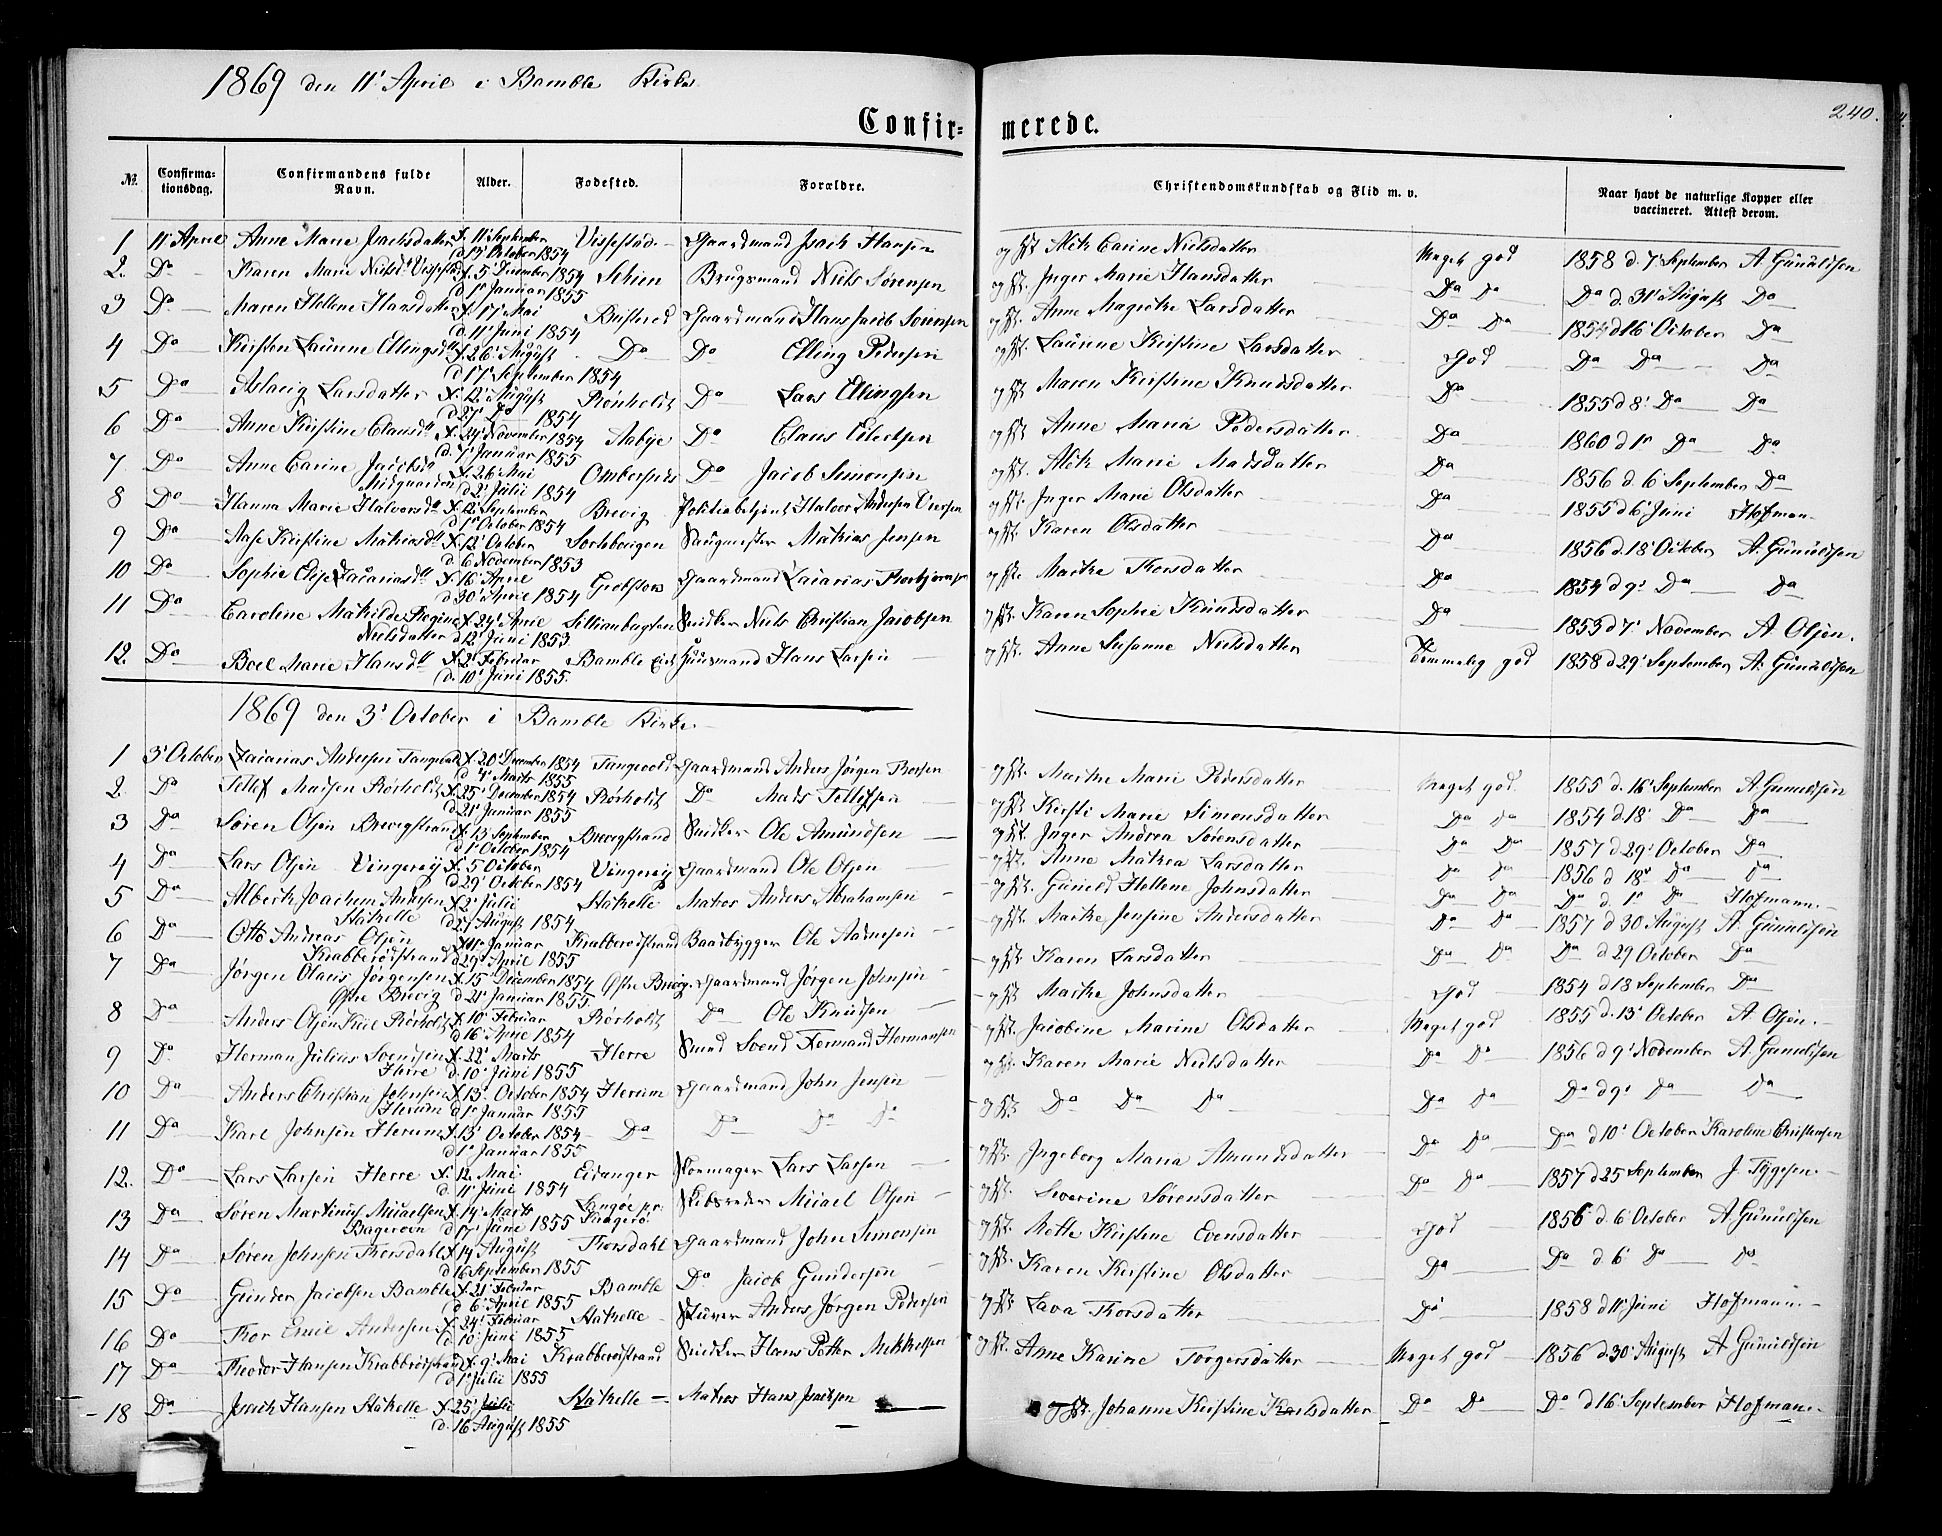 1869 den 11' April i Bamble Kirke
240.
Confir- merede.
No. Confirma-tionsdag. Confirmandens fulde Navn. Alder. Fødested. Forældre. Christendomskundskab og Flid m. v. Naar havt de naturlige Kopper eller vaccineret. Attest derom.
1 11' April Anne Marie Isachsdatter f. 11' September d. 17' October 1854 Vissestad Gaardmand Isach Hansen og Hst. Mette Carine Nielsdatter Meget god 1858 d. 7' September A. Gunuldsen
2. Do Karen Marie Nielsdr f. 5' December 1854 d. 1' Januar 1855 Schien Brugsmand Niels Sørensen og Hst. Inger Marie Hansdatter Do Do Do d. 31' August Do
3 Do Maren Hellene Hansdatter f. 17' Mai d. 11' Juni 1854 Gaardmand Hans Jacob og Hst. Anne Magrethe Larsdatter Do Do 1854 d 16' October Do
4 Do Kirsten Laurine Ellingsdr f. 26' August d 17' September 1854 Do Do Elling Pedersen og Hst. Laurine Kirstine Larsdatter God Do Do Do
5 Do Aslaug Larsdatter f. 12' August d 27' Do 1854 Rørholdt Do Lars Ellingsen og Hst. Maren Kirstine Knudsdatter Do 1855 d 8' Do Do
6 Do Anne Kirstine Clausdr f. 24' November 1854 d. 7' Januar 1855 Aabye Do Claus Eilertsen og Hst. Anne Maria Pedersdatter Do 1860 d 1' Do Do
7 Do Anne Carine Jacobsdr Midgaarden f. 26' Mai d 2' Julii 1854 Ombersnes Do Jacob Simonsen og Hst. Mette Marie Madsdatter Do 1856 d. 6' September Do
8 Do Hanna Marie Halvorsdr f. 12' September d 1' October 1854 Brevig Politiebetjent Halvor Andersen og Hst. Inger Marie Olsdatter Do 1855 d 6' Juni Hofman
9 Do Aase Kirstine Mathiasdr f. 12' October d. 6' November 1853 Mathias Jensen og Hst. Karen Olsdatter Do 1856 d. 18' October A. Gunuldsen
10 Do Sophie Elise Zacariasdr f. 16' April d 30' April 1854 Gaardmand Zacarias Thorbjørnsen og Hst. Marthe Thorsdatter Do 1854 d 9' Do Do
11 Do Caroline Mathilde Regine Nielsdatter f. 24' April d 12' Juni 1853 Snidker Niels Christian Jacobsen og Hst. Karen Sophie Knudsdatter Do 1853 d 7' November A. Olsen.
12. Do Boel Marie Hansdr f. 2' Februar d. 10' Juni 1855. Bamble Huusmand Hans Larsen og Hst. Anne Susanne Nielsdatter Temmelig god 1858 d 29' September A. Gunuldsen
1869 den 3' October i Bamble Kirke.
1 3' October Zacarias Andersen Tangvald f. 20' December 1854 d 4' Marts 1855 Tangvald Gaardmand Anders Jørgen Thorsen og Hst. Marthe Marie Pedersdatter Meget god 1855 d. 16' September A. Gunuldsen
2. Do Tellef Madsen Rørholdt f. 25' December 1854 d. 21' Januar 1855 Rørholdt Do Mads Tellefsen og Hst. Kirsti Marie Simonsdatter Do Do 1854 d 18' Do Do
3 Do Søren Olsen Brevigstrand f. 13' September d 1' October 1854 Brevigstrand Snidker Ole Amundsen og Hst. Inger Andrea Sørensdatter Do Do 1857 d 29' October Do
4 Do Lars Olsen Vingereij f. 5' October d 29' October 1854 Vingereij Gaardmand Ole Olsen og Hst. Anne Mathea Larsdatter Do Do 1856 d 18' Do Do
5 Do Albert Joachim Andersen Stathelle f. 2' Julii d 27' August 1854 Stathelle Matros Anders Abrahamsen og Hst. Gunild Hellene Johnsdatter Do Do Do d. 1' Do Hofmann
6 Do Otto Andreas Olsen Krabberødstrand f. 11' Januar d 29' April 1855 Krabberødstrand Baadbygger Ole Aadnesen og Hst. Marthe Jensine Andersdatter Do Do 1857 d 30' August A. Gunuldsen
7 Do Jørgen Olaus Jørgensen Østre Brevig f. 15' December 1854 d 21' Januar 1855. Østre Brevig. Gaardmand Jørgen Johnsen og Hst. Karen Larsdatter Do Do Do d 29 October Do
8 Do Anders Olsen Rørholdt f. 10' Februar d 16' April 1854 Rørholdt Do Ole Knudsen og Hst. Marthe Johnsdatter God 1854 d 18 September Do
9 Do Herman Julius Svendsen Herre f. 22' Marts d. 10' Juni 1855 Herre Svend Hermansen og Hst. Jacobine Marine Olsdatter Meget god 1855 d. 13' October A. Olsen
10 Do Anders Christian Johnsen Herum f. 13' October 1854 d 1' Januar 1855 Herum Gaardmand John Jensen og Hst. Karen Marie Nielsdatter Do Do 1856 d 9' November A. Gunuldsen
11 Do Karl Johnsen Herum f. 13' October 1854 d 1' Januar 1855 Do Do Do Do og Hst. Do Do Do Do Do Do d 9' Do Do
12. Do Lars Larsen Herre f. 12' Mai d. 11' Juni 1854 Eidanger Lars Larsen og Hst. Ingeborg Maria Amundsdatter Do Do Do d 10' October Karoline Christensen
13 Do Søren Martinus Micaelsen f. 14' Marts d 17' Juni 1855 Langøe pr. Kragerø Skibsreder Micael Olsen og Hst. Severine Sørensdatter Do Do 1857 d 25 September J. Tygesen
14 Do Søren Johnsen Thorsdahl f. 14' August d 16 September 1855 Thorsdahl Gaardmand John Simonsen og Hst. Mette Kirstine Evensdatter God 1856 d. 6' October A. Gunuldsen
15 Do Gunder Jacobsen Bamble f. 21' Februar d 6' April 1855 Bamble Do Jacob Gundersen og Hst. Karen Kirstine Olsdatter Do Do d 6' Do Do
16 Do Thor Emil Andersen f. 24' Februar d. 10' Juni 1855 Stathelle Anders Jørgen Pedersen og Hst. Lava Thorsdatter Do 1858 d 11' Juni Hofmann
17 Do Theodor Hansen Krabberødstrand f. 9' Mai d 1' Julii 1855 Krabberødstrand Snidker Hans Petter Mikkelsen og Hst. Anne Karine Torgersdatter Meget god 1856 d. 30' August A. Gunuldsen
18 Do Isach Hansen Stathelle f. 25' Julii d. 16 August 1855 Stathelle Matros Hans Isachsen og Hst. Johanne Kirstine Karlsdatter Do Do Do d 16' September Hofmann